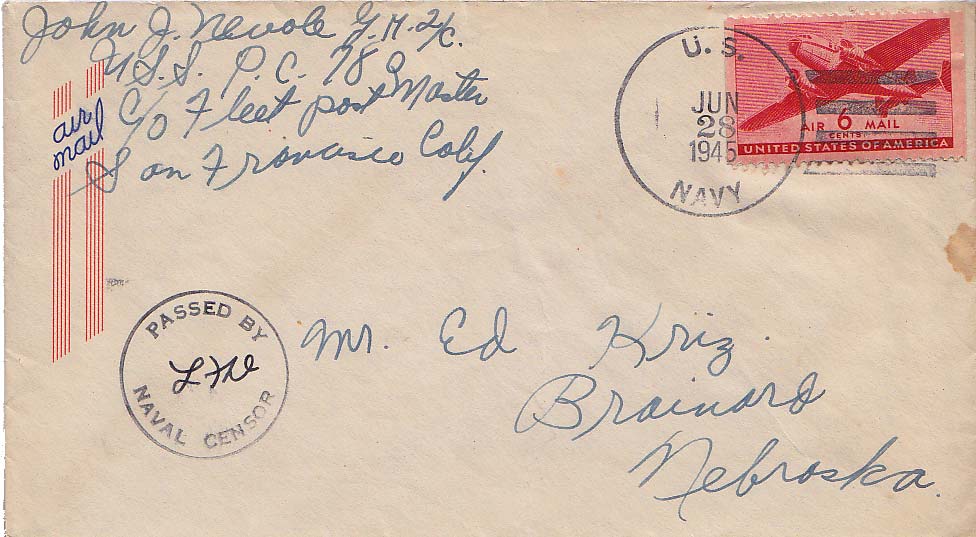 John J. Nevole G.M. 2/c.
U.S.S. P.C. 78
C/O Fleet post Master
San Francisco Calif.
air
mail
U. S.
JUN
28
1945
NAVY
AIR 6¢ MAIL
CENTS
UNITED STATES OF AMERICA
PASSED BY
NAVAL CENSOR
Mr. Ed Kriz.
Brainard
Nebraska.